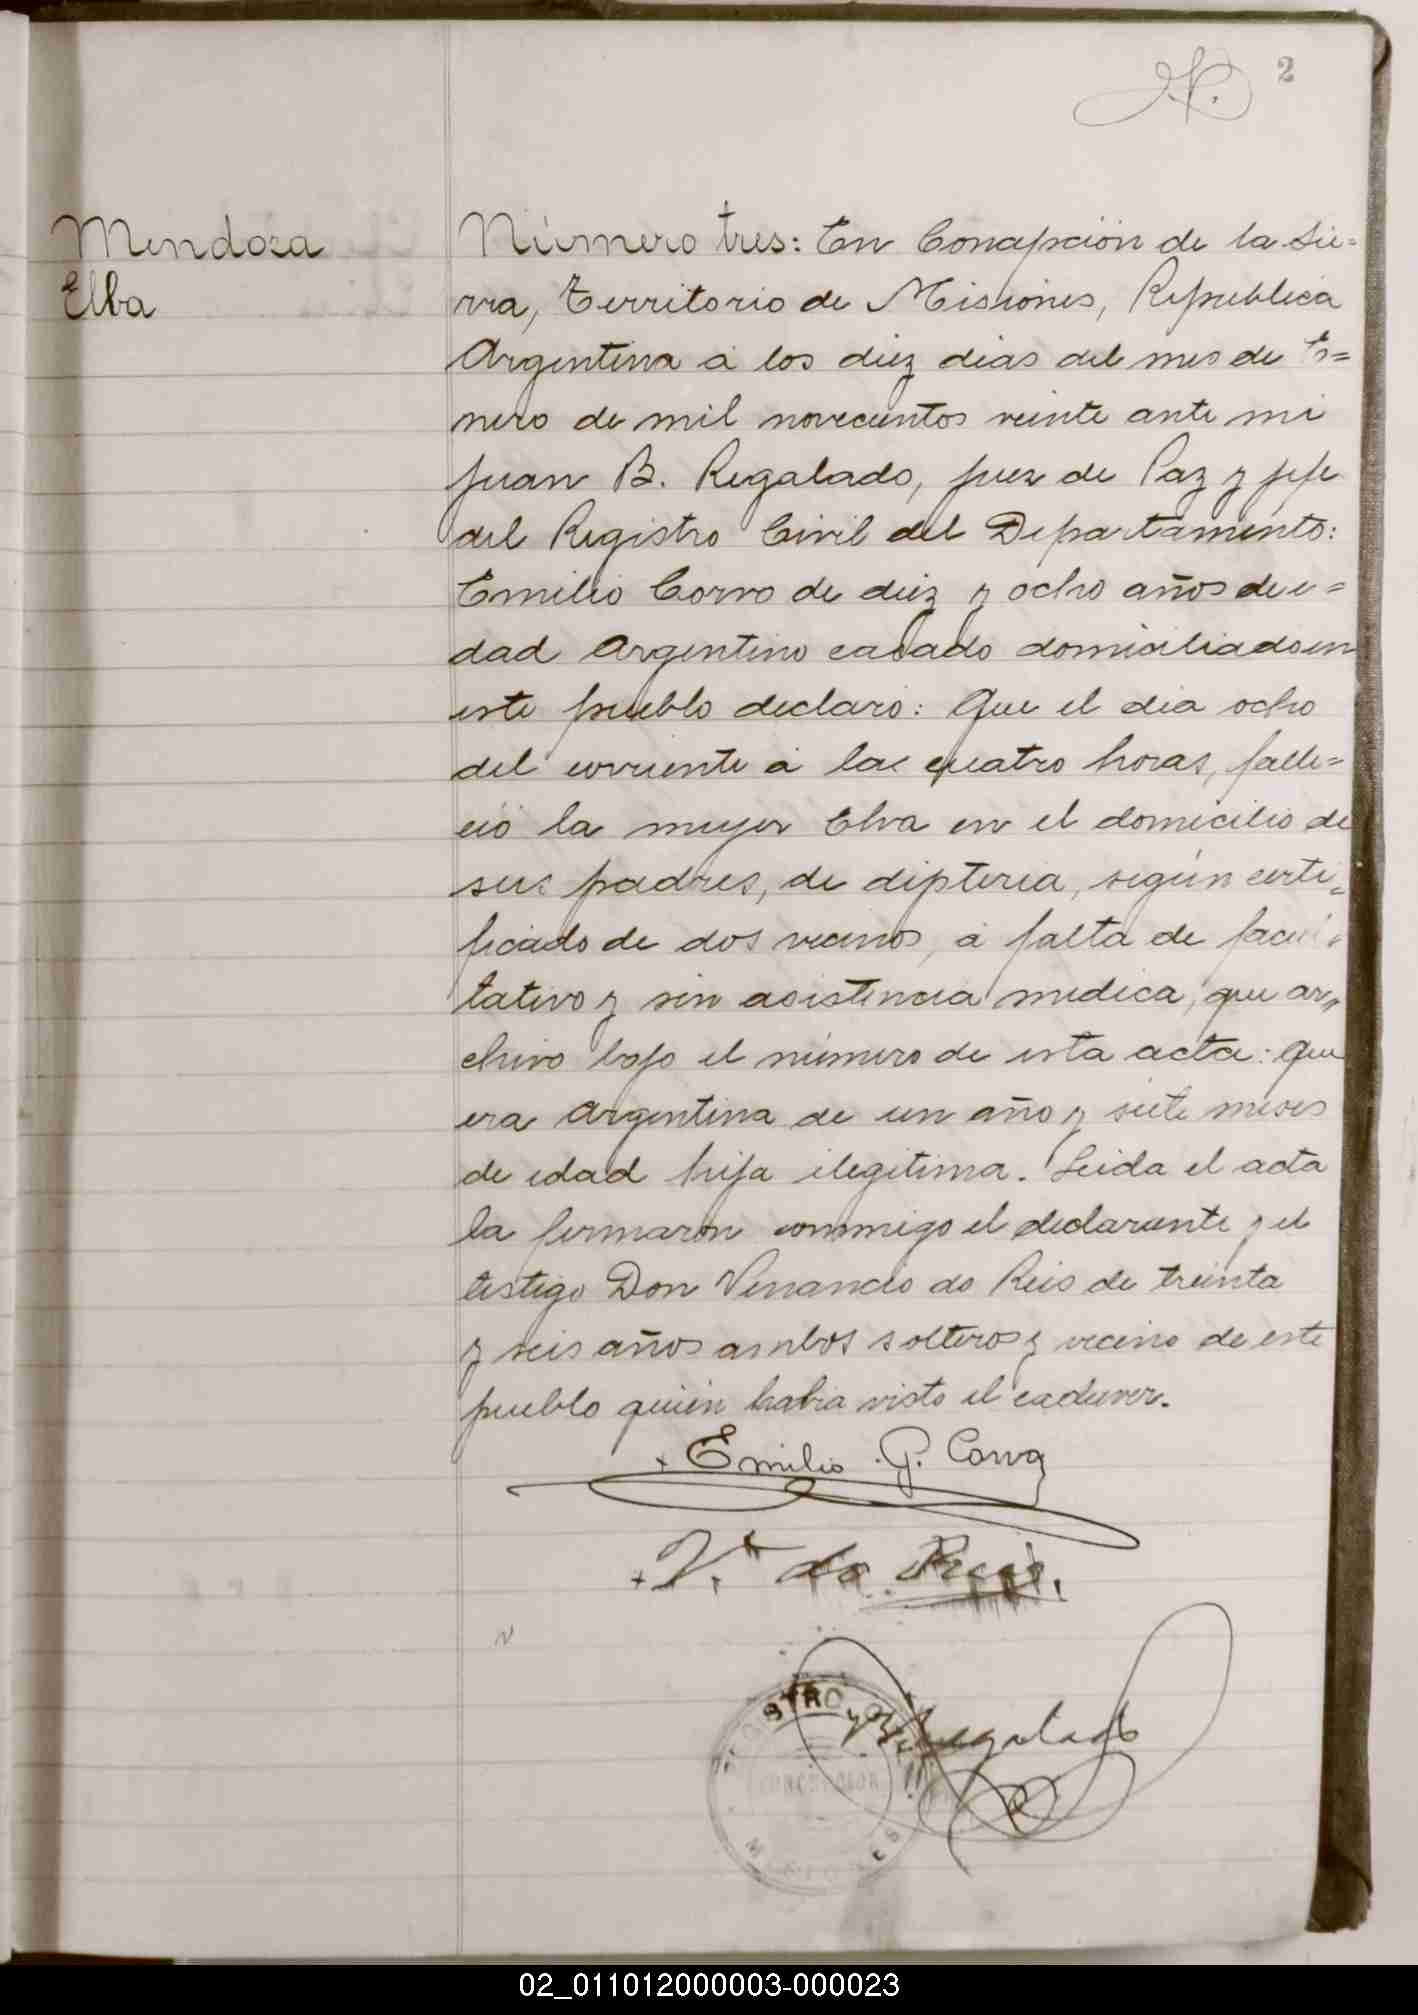 2
Mendosa
Elba
Número tres: En Concepción de la Sie=
rra, Territorio de Misiones, Republica
Argentina á los diez dias del mes de E=
nero de mil novecientos veinte ante mi
Juan B. Regalado, juez de Paz y jefe
del Registro Civil del Departamento:
Emilio Corro de diez y ocho años de e=
dad Argentino casado domiciliado en
este pueblo declaró: Que el dia ocho
del corriente á las cuatro horas, falle=
ció la mujer Elva en el domicilio de
sus padres, de dipteria, según certi=
ficado de dos vecinos, á falta de facul=
tativo y sin asistencia medica, que ar=
chivo bajo el número de esta acta: que
era Argentina de un año y siete meses
de edad hija ilegitima. Leida el acta
la firmaron conmmigo el declarante y el
testigo Don Venancio do Reis de treinta
y seis años ambos solteros y vecino de este
pueblo quién habia visto el cadaver.
Emilio G. Corro
V. do Reis.
Regalado
CONCEPCION
MISIONES
02_011012000003-000023